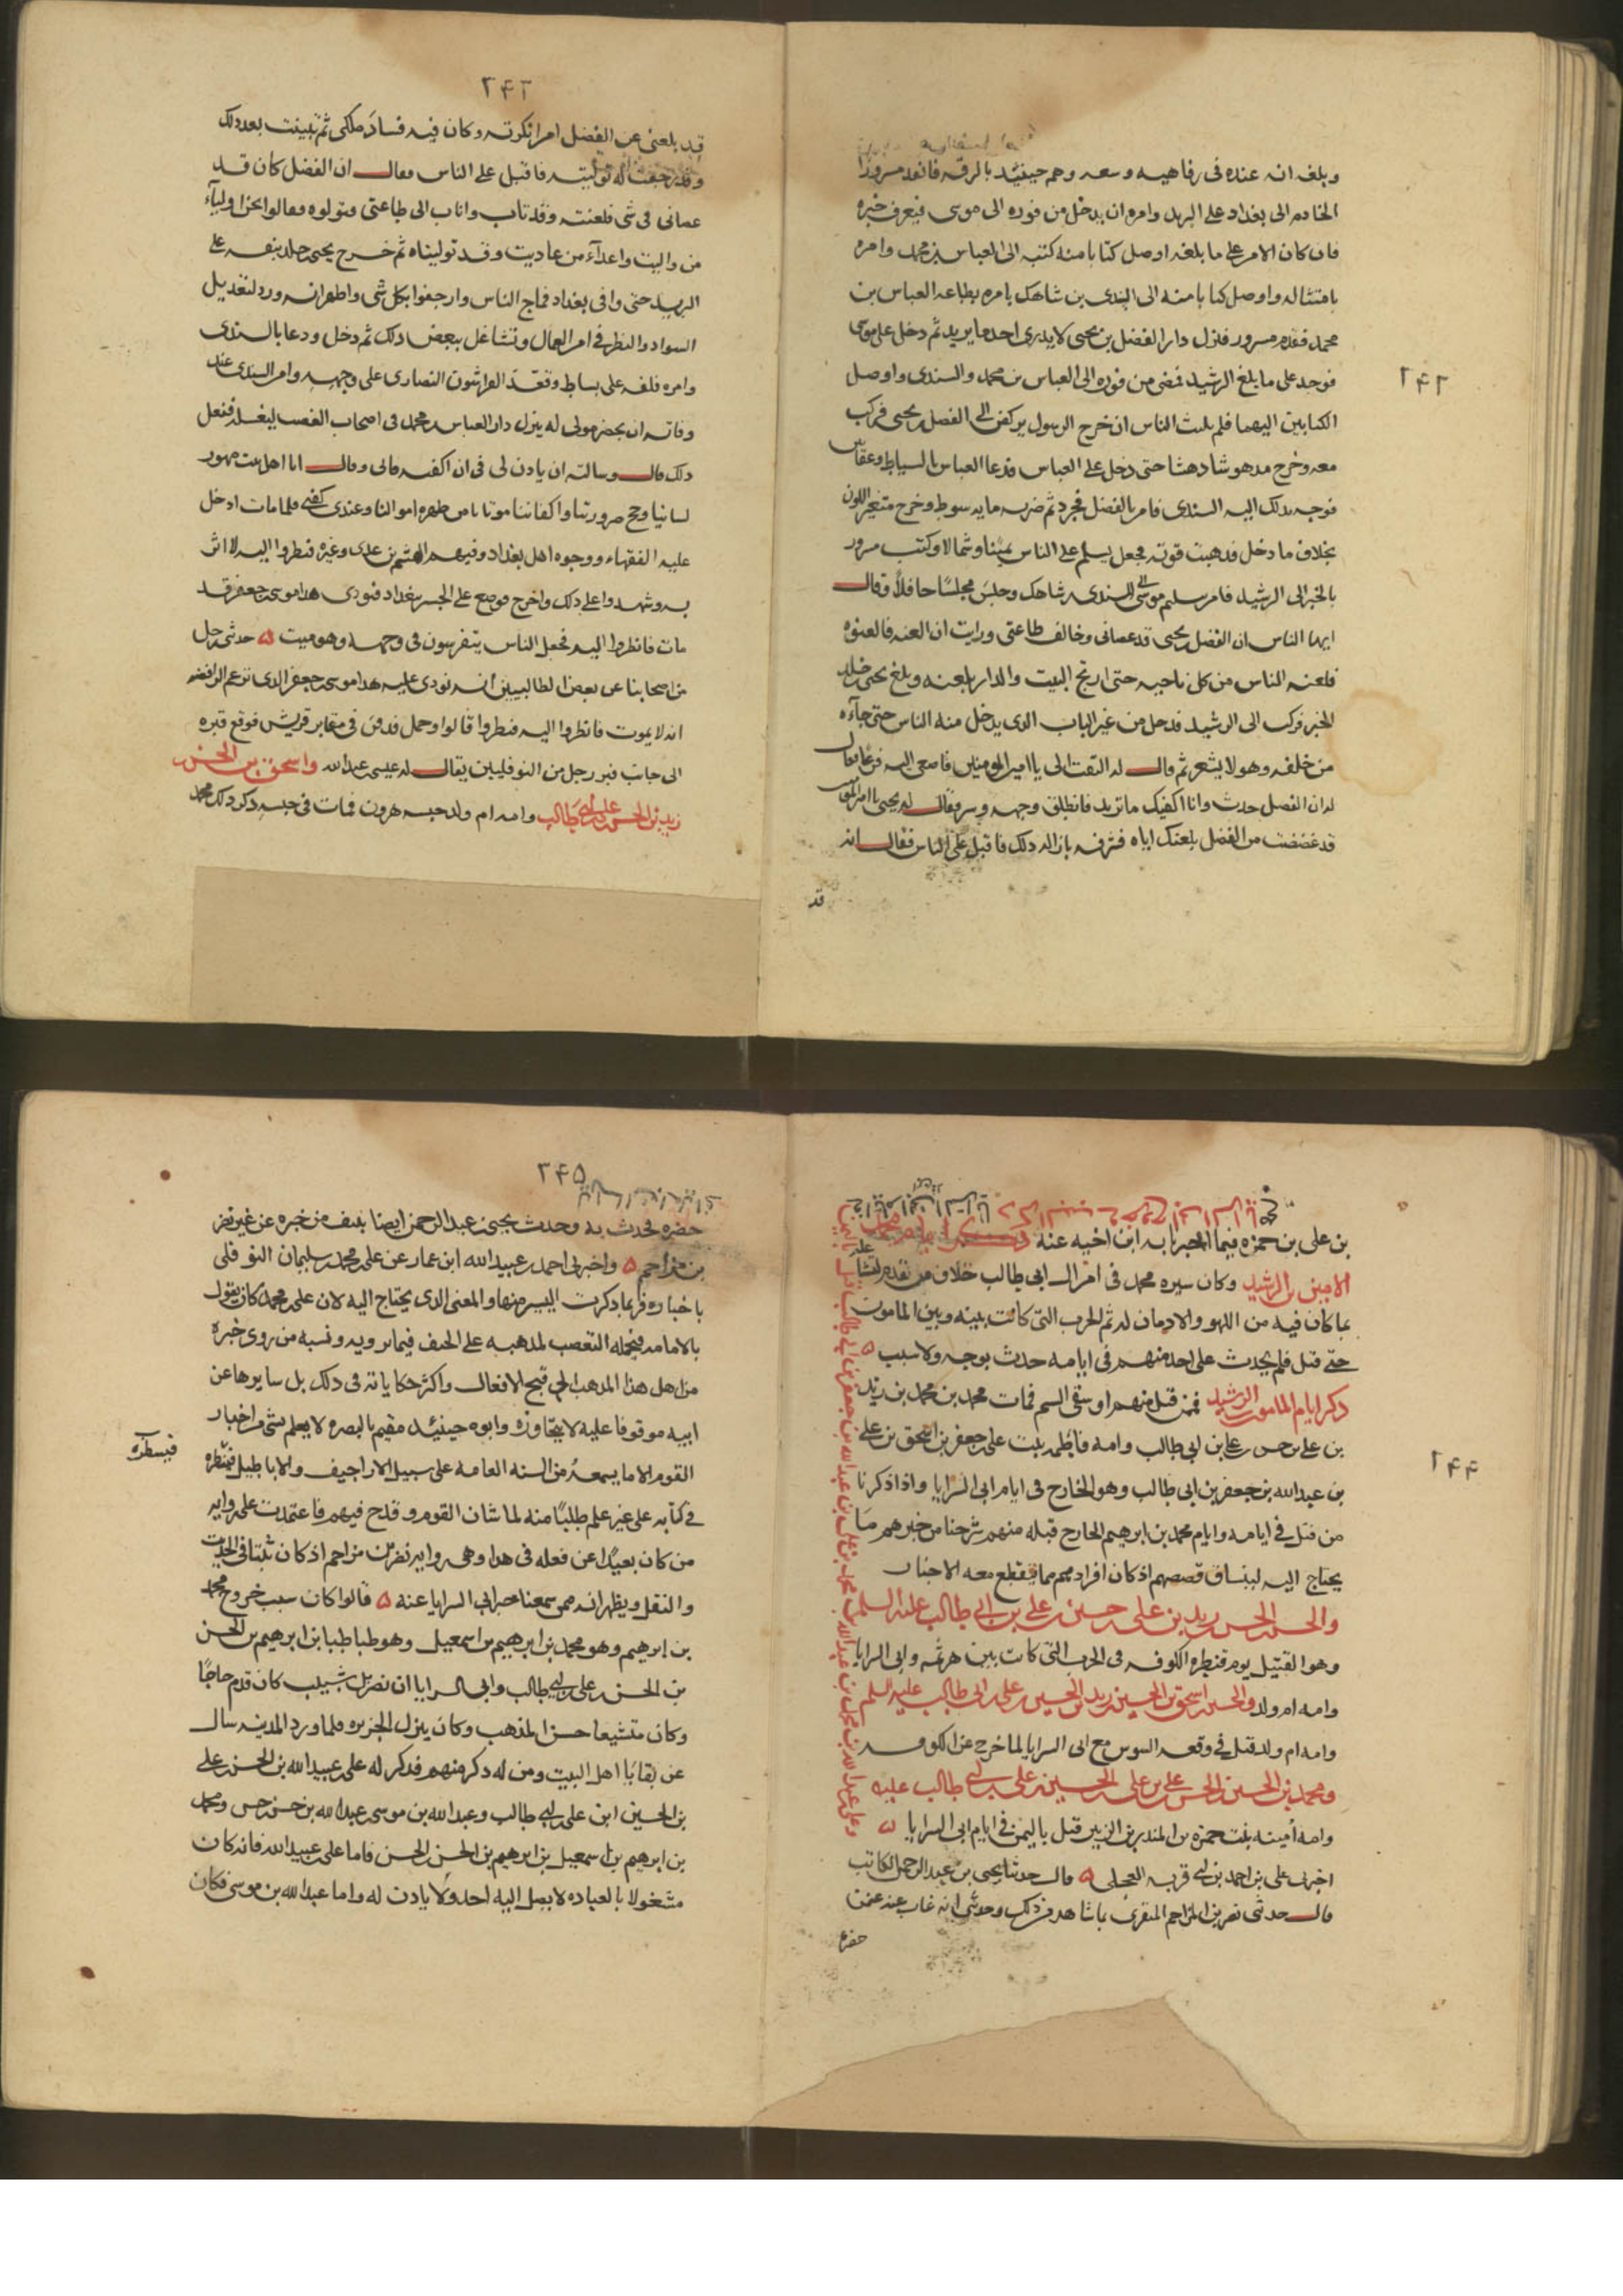 ۲۴۲
وبلغه انه عنده فى رفاهيه وسعه وهو حينئذ بالرقه فانفذ مسرورا
الخادم الى بغداد على البريد وامره ان يدخل من فوره الى موسى فيعرف خبره
فان كان الامر على ما بلغه اوصل كتابا منه كتبه الى العباس بن محمد وامره
بامتثاله واوصل كتابا منه الى السندى بن شاهك يامره بطاعه العباس بن
محمد فقدم مسرور فنزل دار الفضل بن يحيى لا يدرى احد ما يريد ثم دخل على موسى
فوجد على ما بلغ الرشيد فمضى من فوره الى العباس بن محمد والسندى واوصل
الكتابين اليهما فلم يلبث الناس ان خرج الرسول يركض الى الفضل بن يحيى فركب
معه وخرج مدهوشا دهشا حتى دخل على العباس فدعا العباس بالسياط وعقابين
فوجه بذلك اليه السندى فامر بالفضل فجرد ثم ضربه مايه سوط وخرج متغير اللون
بخلاف ما دخل فذهبت قوته فجعل يسلم على الناس يمينا وشمالا وكتب مسرور
بالخبر الى الرشيد فامر بتسليم موسى الى السندى بن شاهك وجلس مجلسًا حافلًا وقال
ايها الناس ان الفضل بن يحيى قد عصانى وخالف طاعتى ورايت ان العنه فالعنوه
فلعنه الناس من كل ناحيه حتى ارتج البيت والدار بلعنه وبلغ يحيى بن خالد
الخبر فركب الى الرشيد فدخل من غير الباب الذى يدخل منه الناس حتى جآءه
من خلفه وهو لا يشعر ثم قال له التفت الى يا امير المومنين فاصغى اليه فزعا فقال
له ان الفضل حدث وانا اكفيك ما تريد فانطلق وجهه وسر فقال له يحيى يا امير المومنين
قد غضضت من الفضل بلعنك اياه فشرفه بازاله ذلك فاقبل على الناس فقال انه
قد
۲۴۳
قد بلغنى عن الفضل امر انكرته وكان فيه فساد ملكى ثم تبينت بعد ذلك
وقد رجعت له توليته فاقبل على الناس فقال ان الفضل كان قد
عصانى فى شى فلعنته وقد تاب واناب الى طاعتى فتولوه فقالوا نحن اوليآء
من واليت واعدآء من عاديت وقد توليناه ثم خرج يحيى بن خالد بنفسه على
البريد حتى وافى بغداد فماج الناس وارجفوا بكل شى واظهر انه ورد لتعديل
السواد والنظر فى امر العمال وتشاغل ببعض ذلك ثم دخل ودعا بالسندى
وامره فلفه على بساط وقعد الفراشون النصارى على وجهه وامر السندى عند
وفاته ان يحضر مولى له ينزل دار العباس بن محمد فى اصحاب القصب ليغسله ففعل
ذلك قال وسالته ان ياذن لى فى ان اكفنه فابى وقال انا اهل بيت مهور
نسائنا وحج صرورتنا واكفان موتانا من طهره اموالنا وعندى كفنى فلما مات ادخل
عليه الفقهاء ووجوه اهل بغداد وفيهم الهيثم بن عدى وغيره فنظروا اليه لا اثر
به وشهدوا على ذلك واخرج فوضع على الجسر ببغداد فنودى هذا موسى بن جعفر قد
مات فانظروا اليه فجعل الناس يتفرسون فى وجهه وهو ميت ه حدثنى رجل
من اصحابنا عن بعض الطالبيين انه نودى عليه هذا موسى بن جعفر الذى تزعم الرافضه
انه لا يموت فانظروا اليه فنظروا قالوا وحمل فدفن فى مقابر قريش فوقع قبره
الى جانب قبر رجل من النوفليين يقال له عيسى بن عبد الله واسحق بن الحسن
زيد بن الحسن بن على بن ابى طالب وامه ام ولد حبسه هرون فمات فى حبسه ذكر ذلك محمد
۲۴۴
بن على بن حمزه فيما اخبرنا به ابن اخيه عنه
الامين بن الرشيد وكان سيره محمد فى امر ال ابى طالب خلاف من تقدم لتشاغله
بما كان فيه من اللهو والادمان له ثم الحرب التى كانت بينه وبين المامون
حتى قتل فلم يحدث على احد منهم فى ايامه حدث بوجه ولا سبب ه
ذكر ايام المامون بن الرشيد فمن قتل منهم او سقى السم فمات محمد بن محمد بن زيد
بن على بن حسين بن على بن ابى طالب وامه فاطمه بنت على بن جعفر بن اسحق بن على
بن عبد الله بن جعفر بن ابى طالب وهو الخارج فى ايام ابى السرايا واذا ذكرنا
من قتل فى ايامه وايام محمد بن ابرهيم الخارج قبله منهم شرحنا من خبرهم ما
يحتاج اليه لينساق قصصهم اذ كان افرادهم مما يقطع معه الاخبار
والحسن بن الحسين بن زيد بن على بن حسين بن على بن ابى طالب عليه السلم
وهو القتيل يوم قنطره الكوفه فى الحرب التى كانت بين هرثمه وابى السرايا
وامه ام ولد والحسن بن اسحق بن الحسين بن زيد بن الحسين بن على بن ابى طالب عليه السلم
وامه ام ولد قتل فى وقعه السوس مع ابى السرايا لما خرج عن الكوفه
ومحمد بن الحسين بن الحسن بن على بن على بن الحسين بن على بن ابى طالب عليه
وامه أمينه بنت حمزه بن المنذر بن الزبير قتل باليمن فى ايام ابى السرايا ه
اخبرنى على بن احمد بن ابى قربه العجلى ه قال حدثنا يحيى بن عبد الرحمن الكاتب
قال حدثنى نصر بن المزاحم المنقرى بما شاهد من ذلك وحدثنى انه غاب عنه عمن
حضره
۲۴۵
حضره فحدث به وحدث يحيى بن عبد الرحمن ايضا بنتف من خبره عن غير نصر
بن مزاحم ه واخبرنى احمد بن عبيد الله ابن عمار عن على بن محمد بن سليمان النوفلى
باخباره فربما ذكرت اليسير منها والمعنى الذى يحتاج اليه لان على بن محمد كان يقول
بالامامه فيحمله التعصب لمذهبه على الحيف فيما يرويه ونسبه من روى خبره
من اهل هذا المذهب الى قبيح الافعال واكثر حكاياته فى ذلك بل سايرها عن
ابيه موقوفا عليه لا يتجاوزه وابوه حينئذ مقيم بالبصره لا يعلم بشى من اخبار
القوم الا ما يسمعه من السنه العامه على سبيل الاراجيف والاباطيل فيسطره
فى كتابه على غير علم طلبًا منه لما شان القوم وقدح فيهم فاعتمدت على روايه
من كان بعيدًا عن فعله فى هذا وهى روايه نصر بن مزاحم اذ كان ثبتا فى الحديث
والنقل ويظهر انه ممن سمعنا خبر ابى السرايا عنه ه قالوا كان سبب خروج محمد
بن ابرهيم وهو محمد بن ابرهيم بن اسمعيل وهو طباطبا بن ابرهيم بن الحسن
بن الحسن بن على بن ابى طالب وابى السرايا ان نصر بن شبيب كان قدم حاجًا
وكان متشيعا حسن المذهب وكان ينزل الجزيره فلما ورد المدينه سال
عن بقايا اهل البيت ومن له ذكر منهم فذكر له على بن عبيد الله بن الحسن بن على
بن الحسين ابن على بن ابى طالب وعبد الله بن موسى بن عبد الله بن حسن بن حسن ومحمد
بن ابرهيم بن اسمعيل بن ابرهيم بن الحسن بن الحسن فاما على بن عبيد الله فانه كان
مشغولا بالعباده لا يصل اليه احد ولا ياذن له واما عبد الله بن موسى فكان
فيسطره